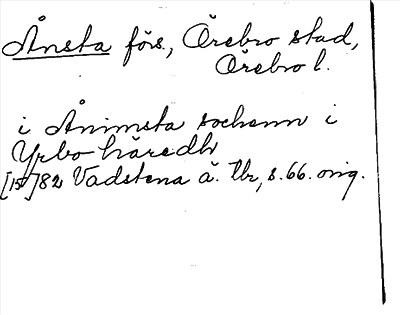 Ånsta förs., Örebro stad,
Örebro l.
i Ånimsta sochenn i
Yrbo häredh
[15]82 Vadstena ä. tbr, s. 66. orig.